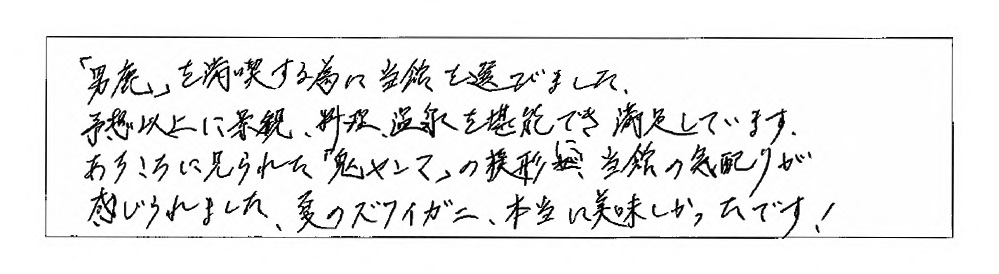 「男鹿」を満喫する為に当館を選びました、
予想以上に景観、料理、温泉を堪能でき満足しています、
あちこちに見られた「鬼ヤンマ」の模形に、当館の気配りが
感じられました、夏のズワイガニ、本当に美味しかったです!